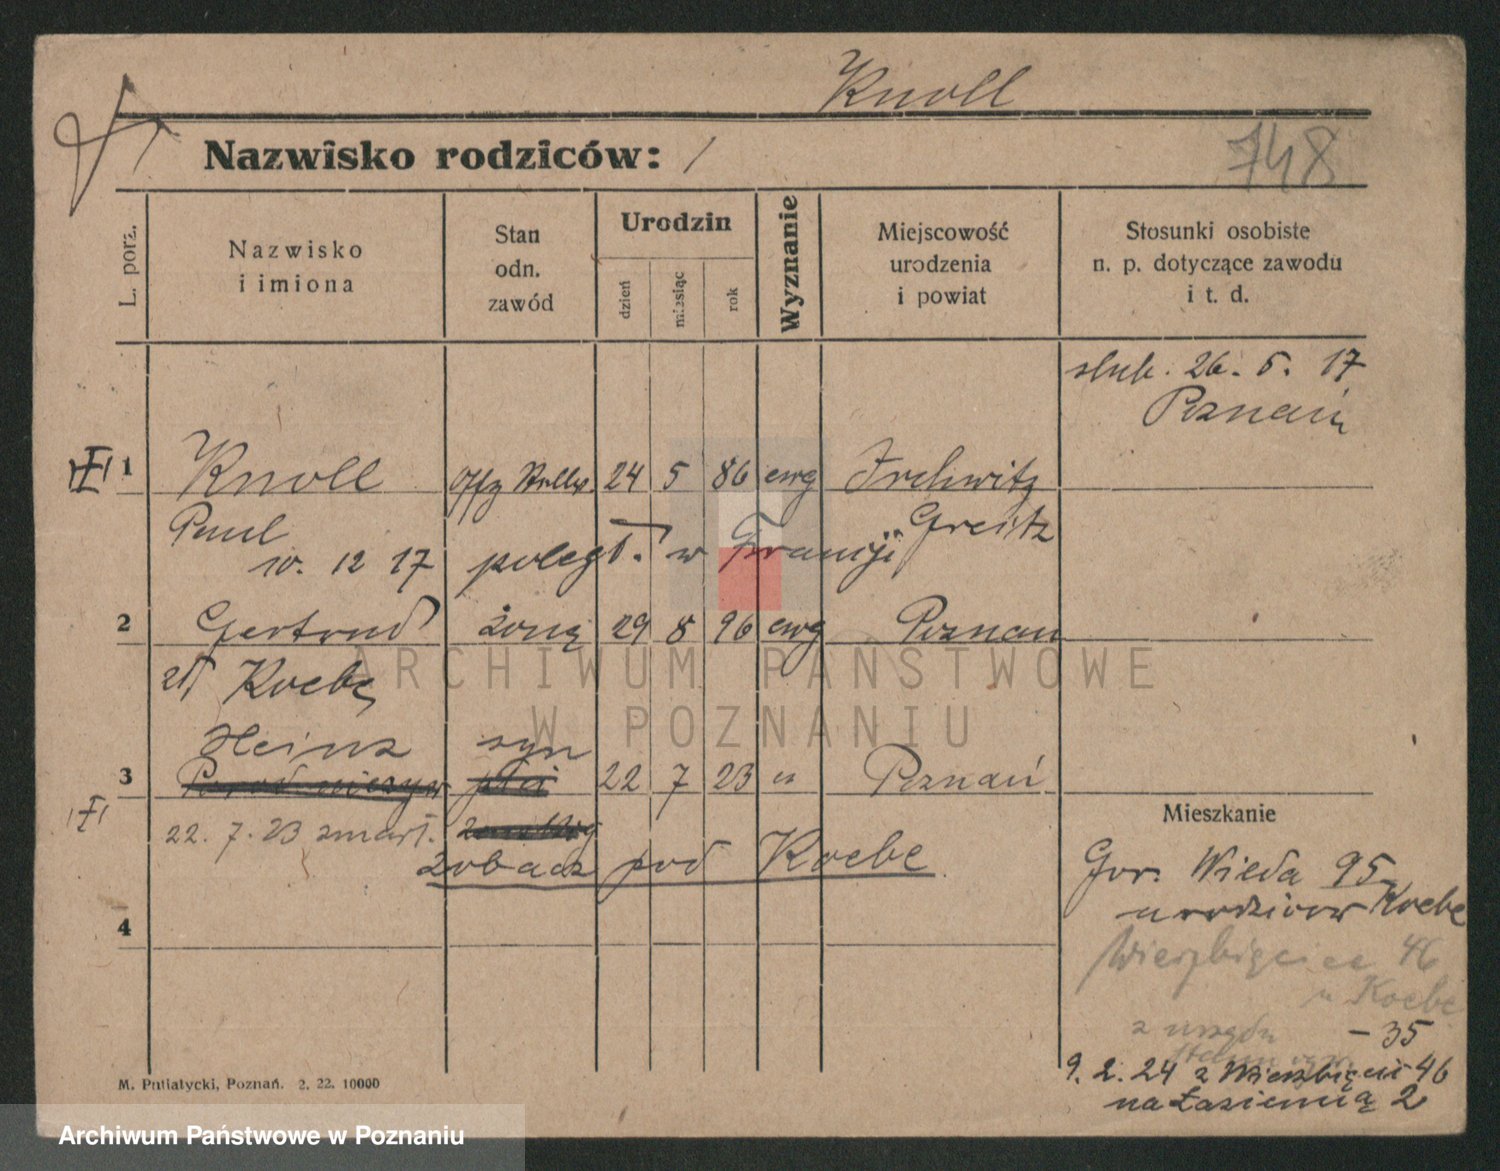 Knoll
Nazwisko rodziców: /
748
L. porz.
Nazwisko
i imiona
Stan
odn.
zawód
Urodzin
dzień
miesiąc
rok
Wyznanie
Miejscowość
urodzenia
i powiat
Stosunki osobiste
n. p. dotyczące zawodu
i t. d.
ślub. 26. 5. 17
Poznań
1 Knoll Offz Stellv. 24 5 86 ewg Irchwitz
Paul Greitz
10. 12 17 poległ. w Francji
2 Gertrud żona 29 8 96 ewg Poznań
zd Koebe
Heinz syn
3 22 7 23 " Poznań
22. 7. 23 zmarł.
zobacz pod Koebe
4
Mieszkanie
Gór. Wilda 95
u rodziców Koebe
Wierzbięcice 46
u Koebe
z urzędu - 35
9. 2. 24 z Wierzbięcic 46
na Łazienną 2
M. Putiatycki, Poznań. 2. 22. 10000
ARCHIWUM PAŃSTWOWE
W POZNANIU
Archiwum Państwowe w Poznaniu